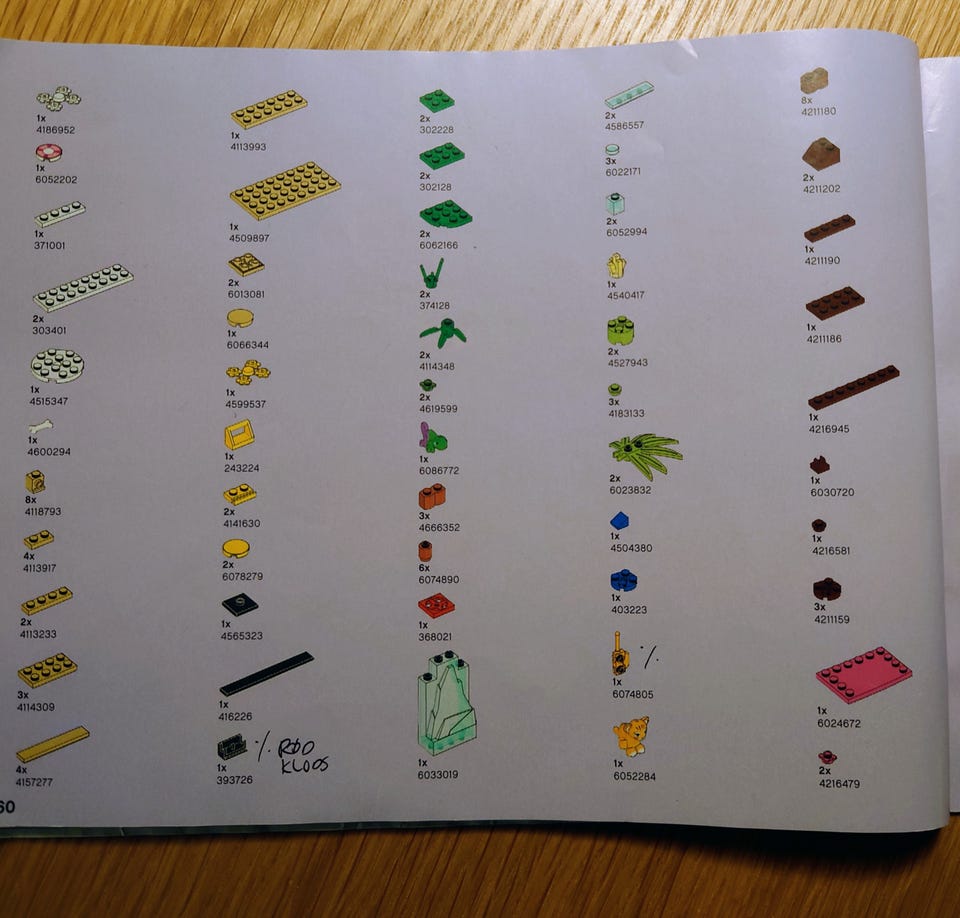 1x
4186952
1x
6052202
1x
371001
2x
303401
1x
4515347
1x
4600294
8x
4118793
4x
4113917
2x
4113233
3x
4114309
4x
4157277
60
1x
4113993
1x
4509897
2x
6013081
1x
6066344
1x
4599537
1x
243224
2x
4141630
2x
6078279
1x
4565323
1x
416226
1x
393726
% RØD
KLODS
2x
302228
2x
302128
2x
6062166
2x
374128
2x
4114348
2x
4619599
1x
6086772
3x
4666352
6x
6074890
1x
368021
1x
6033019
2x
4586557
3x
6022171
2x
6052994
1x
4540417
2x
4527943
3x
4183133
2x
6023832
1x
4504380
1x
403223
%
1x
6074805
1x
6052284
8x
4211180
2x
4211202
1x
4211190
1x
4211186
1x
4216945
1x
6030720
1x
4216581
3x
4211159
1x
6024672
2x
4216479